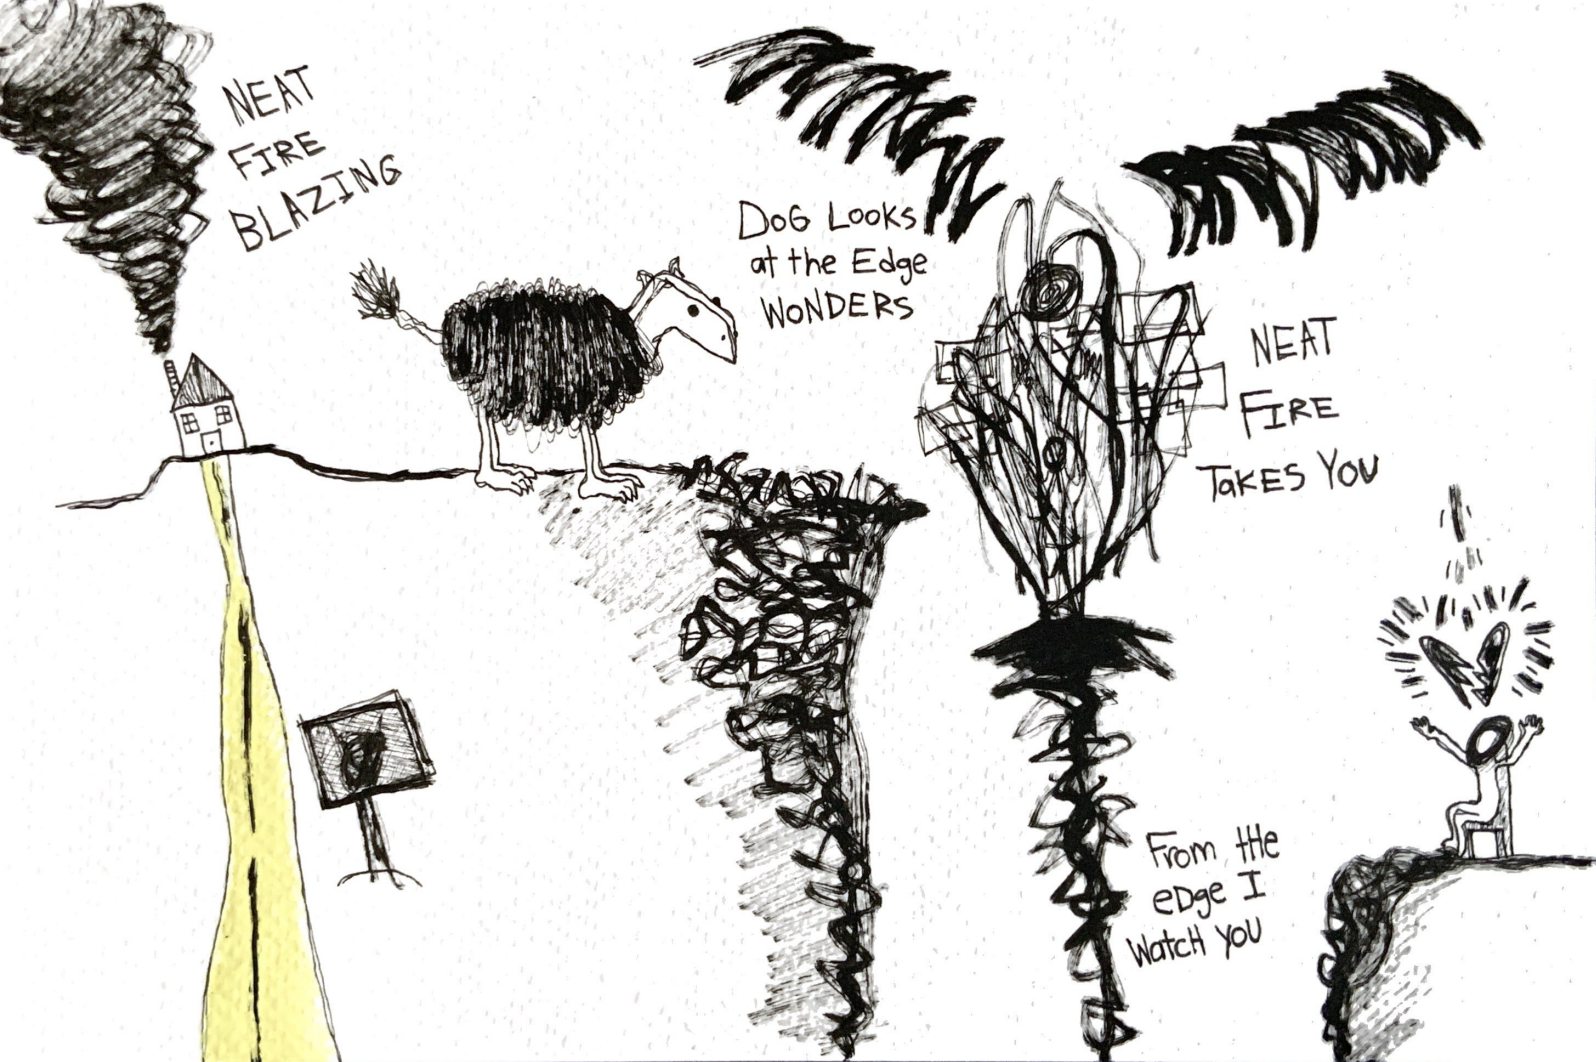 NEAT
FIRE
BLAZING
DOG LOOKS
at the Edge
WONDERS
NEAT
FIRE
TAKES YOU
From the
eDge I
WatcH YOU